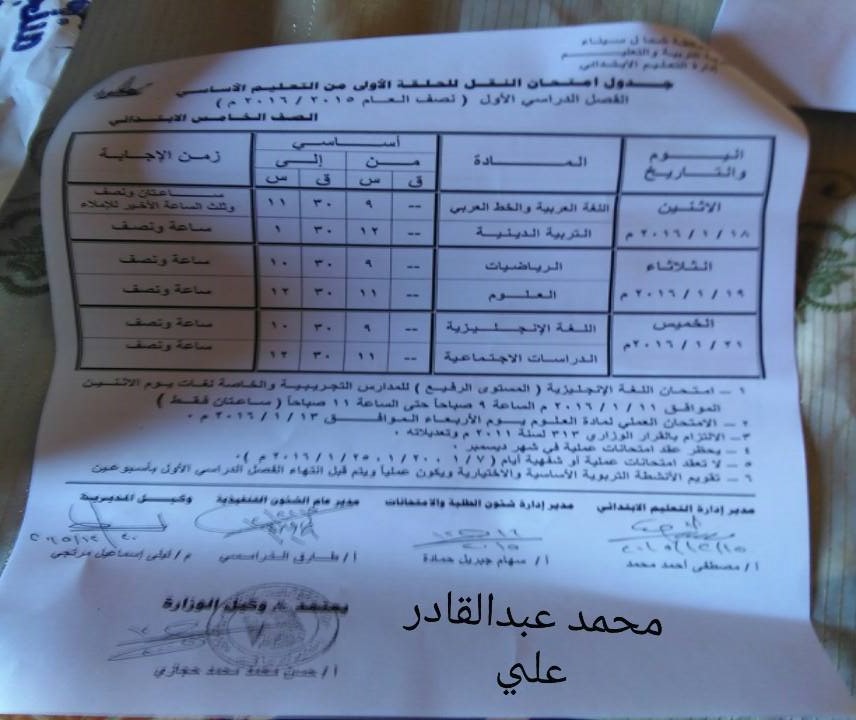 محافظة شمال سيناء
التربية والتعليم
إدارة التعليم الابتدائي
جدول امتحان النقل للحلقة الأولى من التعليم الأساسي
الفصل الدراسي الأول ( نصف العام ٢٠١٥ / ٢٠١٦ م )
الصف الخامس الابتدائي
اليوم والتاريخ المادة أساسي زمن الإجابة
من إلى
ق س ق س
الاثنين ١٨ / ١ / ٢٠١٦ م اللغة العربية والخط العربي -- ٩ ٣٠ ١١ ساعتان ونصف وثلث الساعة الأخير للإملاء
التربية الدينية -- ١٢ ٣٠ ١ ساعة ونصف
الثلاثاء ١٩ / ١ / ٢٠١٦ م الرياضيات -- ٩ ٣٠ ١٠ ساعة ونصف
العلوم -- ١١ ٣٠ ١٢ ساعة ونصف
الخميس ٢١ / ١ / ٢٠١٦م اللغة الإنجليزية -- ٩ ٣٠ ١٠ ساعة ونصف
الدراسات الاجتماعية -- ١١ ٣٠ ١٢ ساعة ونصف
١ – امتحان اللغة الإنجليزية ( المستوى الرفيع ) للمدارس التجريبية والخاصة لغات يوم الاثنين
الموافق ١١ / ١ / ٢٠١٦ م الساعة ٩ صباحاً حتى الساعة ١١ صباحاً ( ساعتان فقط )
٢ – الامتحان العملي لمادة العلوم يوم الأربعاء الموافق ١٣ / ١ / ٢٠١٦ م .
٣ – الالتزام بالقرار الوزاري ٣١٣ لسنة ٢٠١١ م وتعديلاته .
٤ – يحظر عقد امتحانات عملية في شهر ديسمبر .
٥ – لا تعقد امتحانات عملية أو شفهية أيام ( ١/٧ ، ١/٢٠ ، ٢٠١٦/١/٢٥ م ) .
٦ – تقويم الأنشطة التربوية الأساسية والاختيارية ويكون عملياً ويتم قبل انتهاء الفصل الدراسي الأول بأسبوعين
مدير إدارة التعليم الابتدائي مدير إدارة شئون الطلبة والامتحانات مدير عام الشئون التنفيذية وكيل المديرية
أ / مصطفى أحمد محمد أ / سهام جبريل حمادة أ / طارق م / ليلى إسماعيل مرتجي
يعتمد وكيل الوزارة
أ / حسن محمد محمد حجازي
محمد عبدالقادر
علي